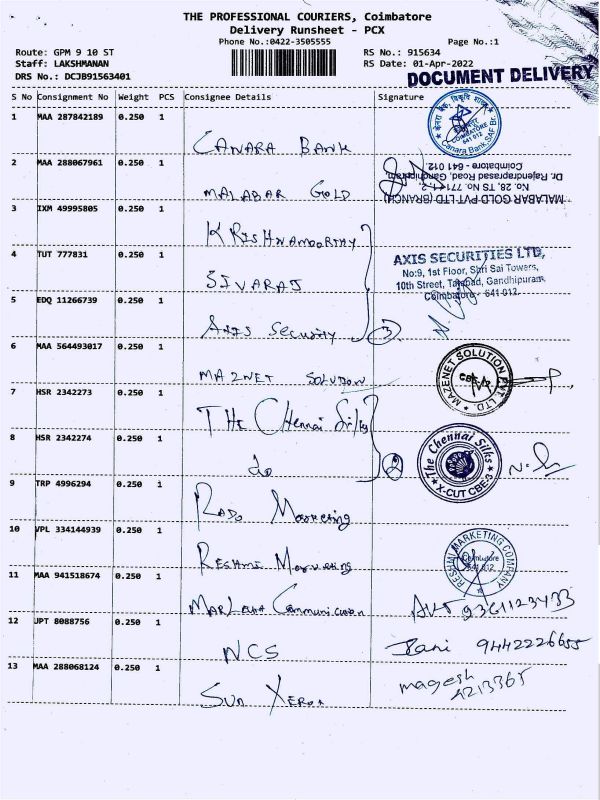 THE PROFESSIONAL COURIERS, Coimbatore
Delivery Runsheet - PCX
Phone No.:0422-3505555
Page No.:1
Route: GPM 9 10 ST
RS No.: 915634
Staff: LAKSHMANAN
RS Date: 01-Apr-2022
DRS No.: DCJB91563401
DOCUMENT DELIVERY
S No Consignment No Weight PCS Consignee Details Signature
1 MAA 287842189 0.250 1 CANARA BANK
Canara Bank, SAF Br.
COIMBATORE
641 012
2 MAA 288067961 0.250 1 MALABAR GOLD
MALABAR GOLD PVT LTD (BRANCH)
No. 28, TS No. 771
Dr. Rajendraprasad Road, Gandhipuram,
Coimbatore - 641 012.
3 IXM 49995805 0.250 1 KRISHNAMOORTHY
4 TUT 777831 0.250 1 SIVARAJ
AXIS SECURITIES LTD,
No:9, 1st Floor, Shri Sai Towers,
10th Street, Tatabad, Gandhipuram,
Coimbatore - 641 012.
5 EDQ 11266739 0.250 1 AXIS Security 3
6 MAA 564493017 0.250 1 MAZNET SOLUTION
MAZENET SOLUTION PVT. LTD.
7 HSR 2342273 0.250 1 THE Chennai Silks
8 HSR 2342274 0.250 1 do 2
The Chennai Silks
X-CUT CBE-3
9 TRP 4996294 0.250 1 RADO Marketing
10 VPL 334144939 0.250 1 RESHMI Marketing
RESHMI MARKETING COMPANY
Coimbatore
641 012
11 MAA 941518674 0.250 1 Communication 9361123433
12 JPT 8088756 0.250 1 NCS Jani 9442226655
13 MAA 288068124 0.250 1 SUN XEROX magesh
4213365